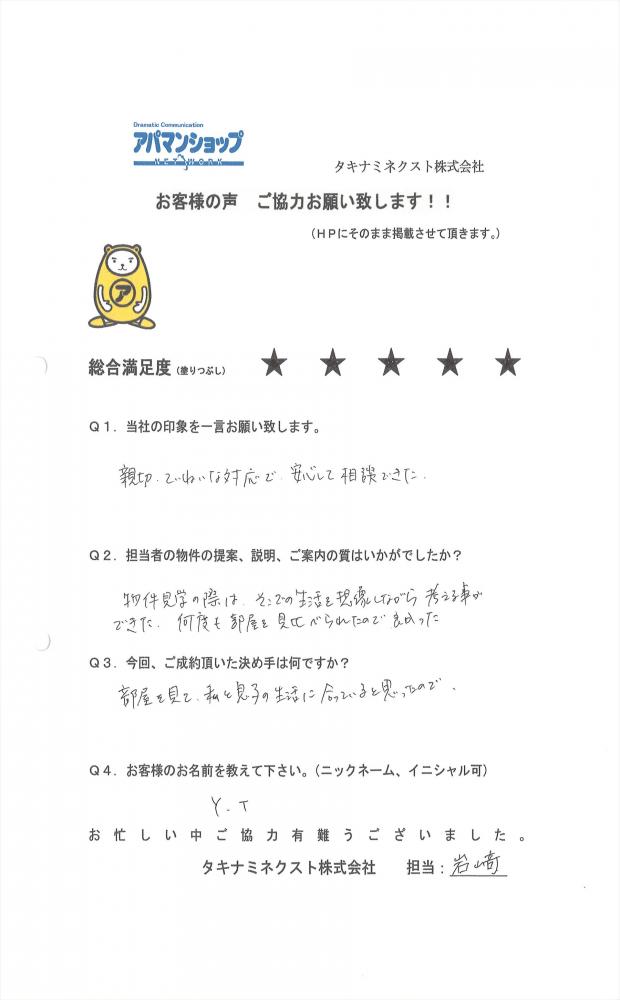 Dramatic Communication
アパマンショップ
NETWORK
タキナミネクスト株式会社
お客様の声　ご協力お願い致します！！
（ＨＰにそのまま掲載させて頂きます。）
ア
総合満足度（塗りつぶし）　★　★　★　★　★
Ｑ１．当社の印象を一言お願い致します。
親切、ていねいな対応で、安心して相談できた。
Ｑ２．担当者の物件の提案、説明、ご案内の質はいかがでしたか？
物件見学の際は、そこでの生活を想像しながら考える事が
できた。何度も部屋を見比べられたので良かった
Ｑ３．今回、ご成約頂いた決め手は何ですか？
部屋を見て、私と息子の生活に合っていると思ったので、
Ｑ４．お客様のお名前を教えて下さい。（ニックネーム、イニシャル可）
Y.T
お忙しい中ご協力有難うございました。
タキナミネクスト株式会社　担当：岩崎